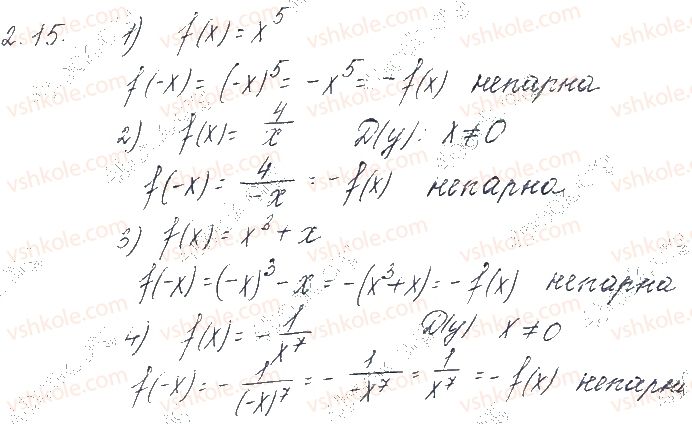 2.15. 1) f(x) = x^5
f(-x) = (-x)^5 = -x^5 = -f(x) непарна
2) f(x) = 4/x D(y): x ≠ 0
f(-x) = 4/-x = -f(x) непарна
3) f(x) = x^3 + x
f(-x) = (-x)^3 - x = -(x^3 + x) = -f(x) непарна
4) f(x) = -1/x^7 D(y) x ≠ 0
f(-x) = -1/(-x)^7 = -1/-x^7 = 1/x^7 = -f(x) непарн
vshkole.com